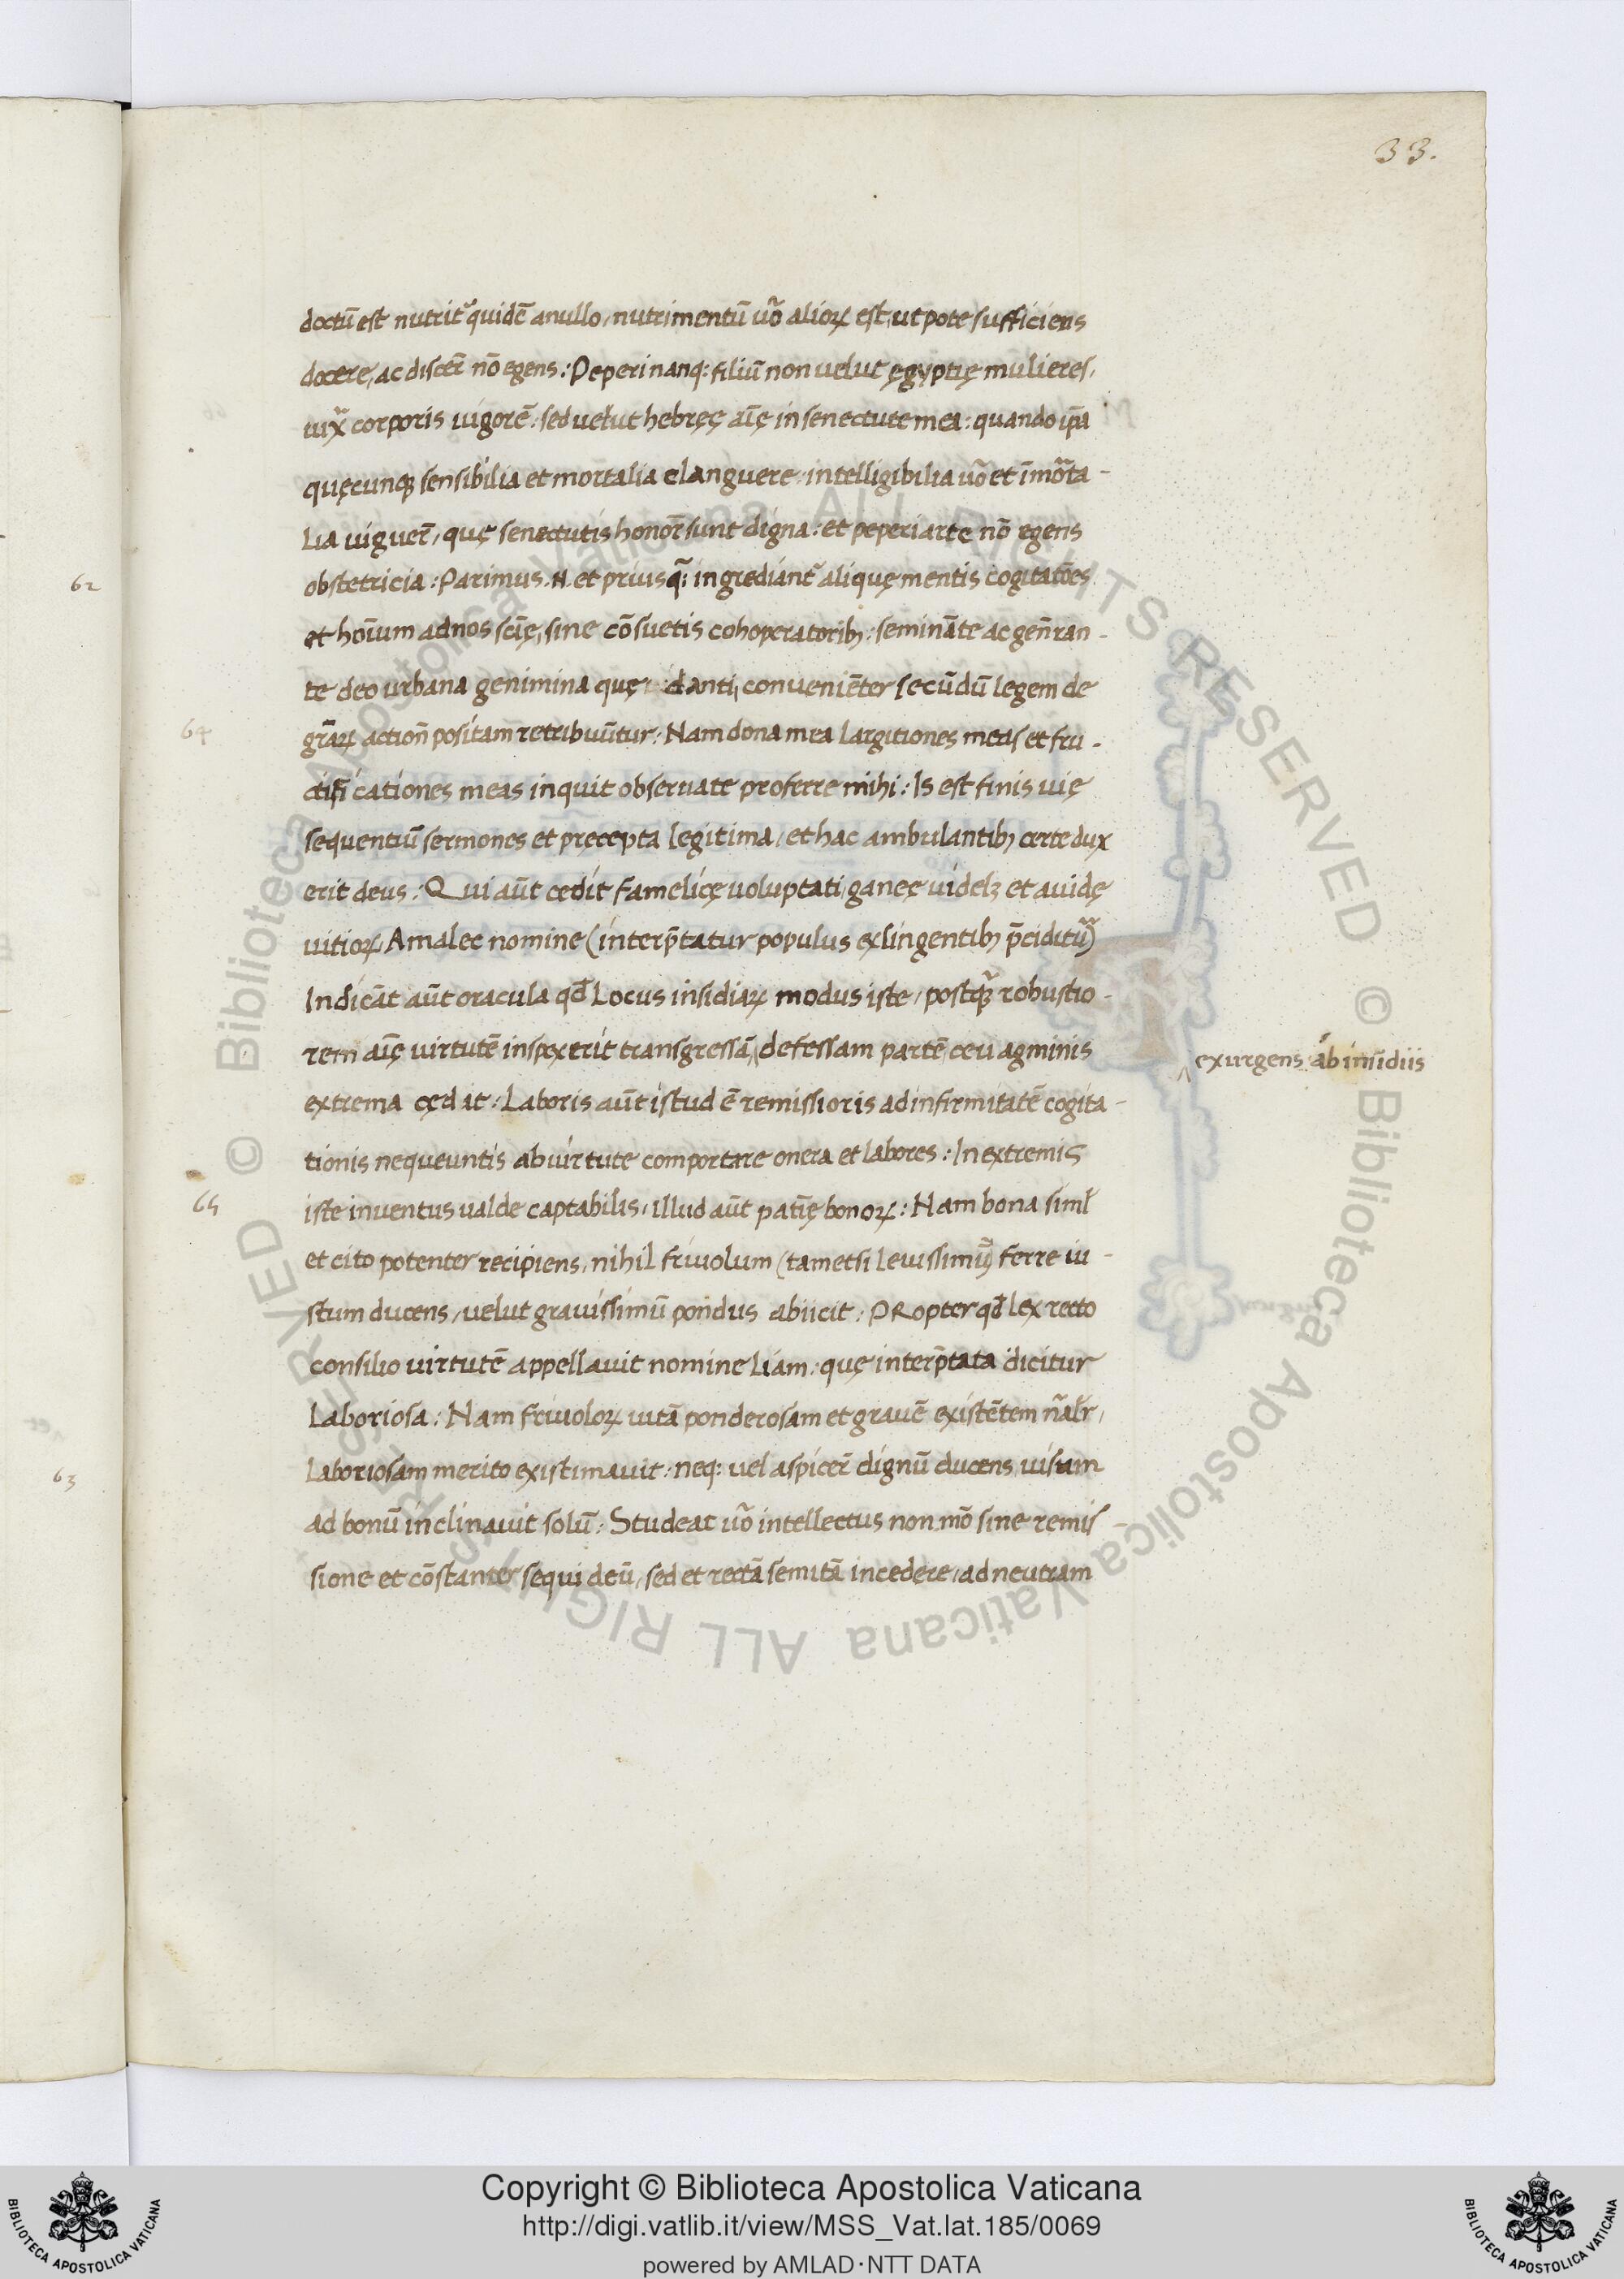 33.
doctū est nutrit᷑ quidē anullo, nutrimentū uo᷑ alioꝝ est, ut pote sufficiens
docere, ac discer̄ nō egens: Peperi nanq: filiū non velut ęgyptię mulieres,
iux͂ corporis uigorē: sed velut hebręę aīę in senectute mea: quando ip̄a
quęcunqꝫ sensibilia et mortalia elanguere: intelligibilia uo᷑ et īmor͂ta-
lia uiguer̄, quę senectutis honor̄ sunt digna: et peperi arte nō egens
62
obstetricia: Parimus .N. et priusq̄ᷓ: ingrediant᷑ aliquę mentis cogitatōes
et hoīum ad nos scīę, sine cōsuetis cohoperatoribꝫ: semināte ac gen̄ran-
te deo urbana genimina quę danti, conueniēter secūdū legem de
64
gr̄aꝝ action̄ positam retribuūtur: Nam dona mea largitiones meas et fru-
ctificationes meas inquit obseruate proferre mihi: Is est finis uię
sequentiū sermones et pręcepta legitima, et hac ambulantibꝫ certe dux
erit deus: Qui aūt cedit famelicę uoluptati, ganeę uidelꝫ et auidę
uitioꝝ, Amalec nomine (interp̄tatur populus exlingentibꝫ p̄ciditur)
Indicāt aūt oracula qd̄ Locus insidiaꝝ modus iste, postqꝫᷓ robustio-
rem aīę uirtutē inspexerit transgressā, defessam partē ceu agminis
exurgens ab insidiis
extrema cędit: Laboris aūt istud ē remissioris ad infirmitatē cogita-
tionis nequeuntis ab uirtute comportare onera et labores: In extremis
65
iste inuentus ualde captabilis, illud aūt patīę bonoꝝ: Nam bona siml̄
et cito potenter recipiens, nihil friuolum (tametsi leuissimū) ferre iu-
stum ducens, uelut grauissimū pondus abiicit: PRopter qd̄ lex recto
consilio uirtutē appellauit nomine Liam: quę interp̄tata dicitur
Laboriosa: Nam friuoloꝝ uitā ponderosam et grauē existētem nāl̄r,
63
Laboriosam merito existimauit: neq: uel aspicer̄ dignū ducens, uisum
ad bonū inclinauit solū: Studeat uo᷑ intellectus non mō sine remis-
sione et cōstanter sequi deū, sed et rectā semitā incedere, ad neutram
Copyright © Biblioteca Apostolica Vaticana
http://digi.vatlib.it/view/MSS_Vat.lat.185/0069
powered by AMLAD·NTT DATA
BIBLIOTECA APOSTOLICA VATICANA
BIBLIOTECA APOSTOLICA VATICANA
© Biblioteca Apostolica Vaticana ALL RIGHTS RESERVED © Biblioteca Apostolica Vaticana ALL RIGHTS RESERVED